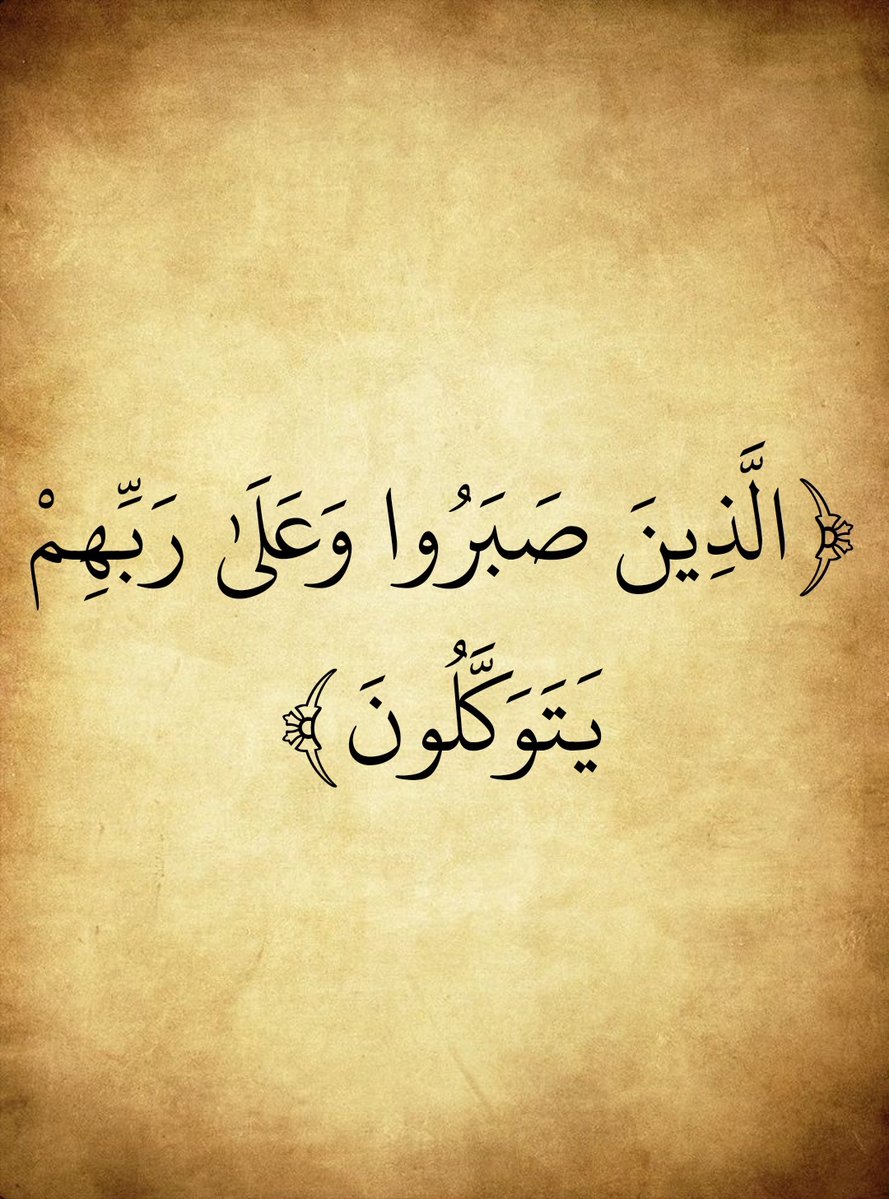 ﴿الَّذِينَ صَبَرُوا وَعَلَىٰ رَبِّهِمْ
يَتَوَكَّلُونَ﴾